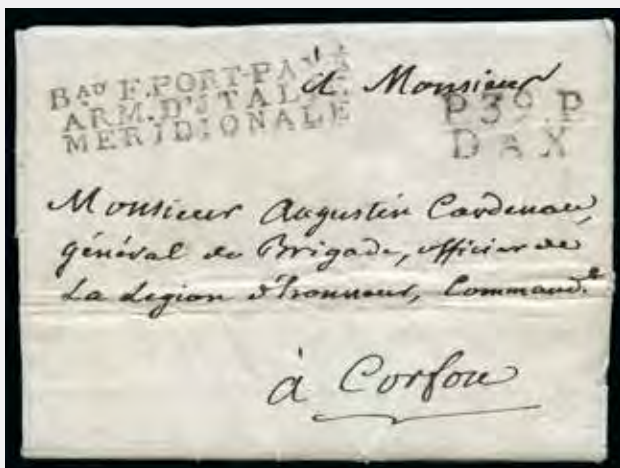 Bau F. PORT-PAYÉ
ARM. D'ITALIE
MERIDIONALE
P.39.P
DAX
à Monsieur
Monsieur Augustin Cardenau,
général de Brigade, officier de
La Legion d'honneur, Command.t
à Corfou